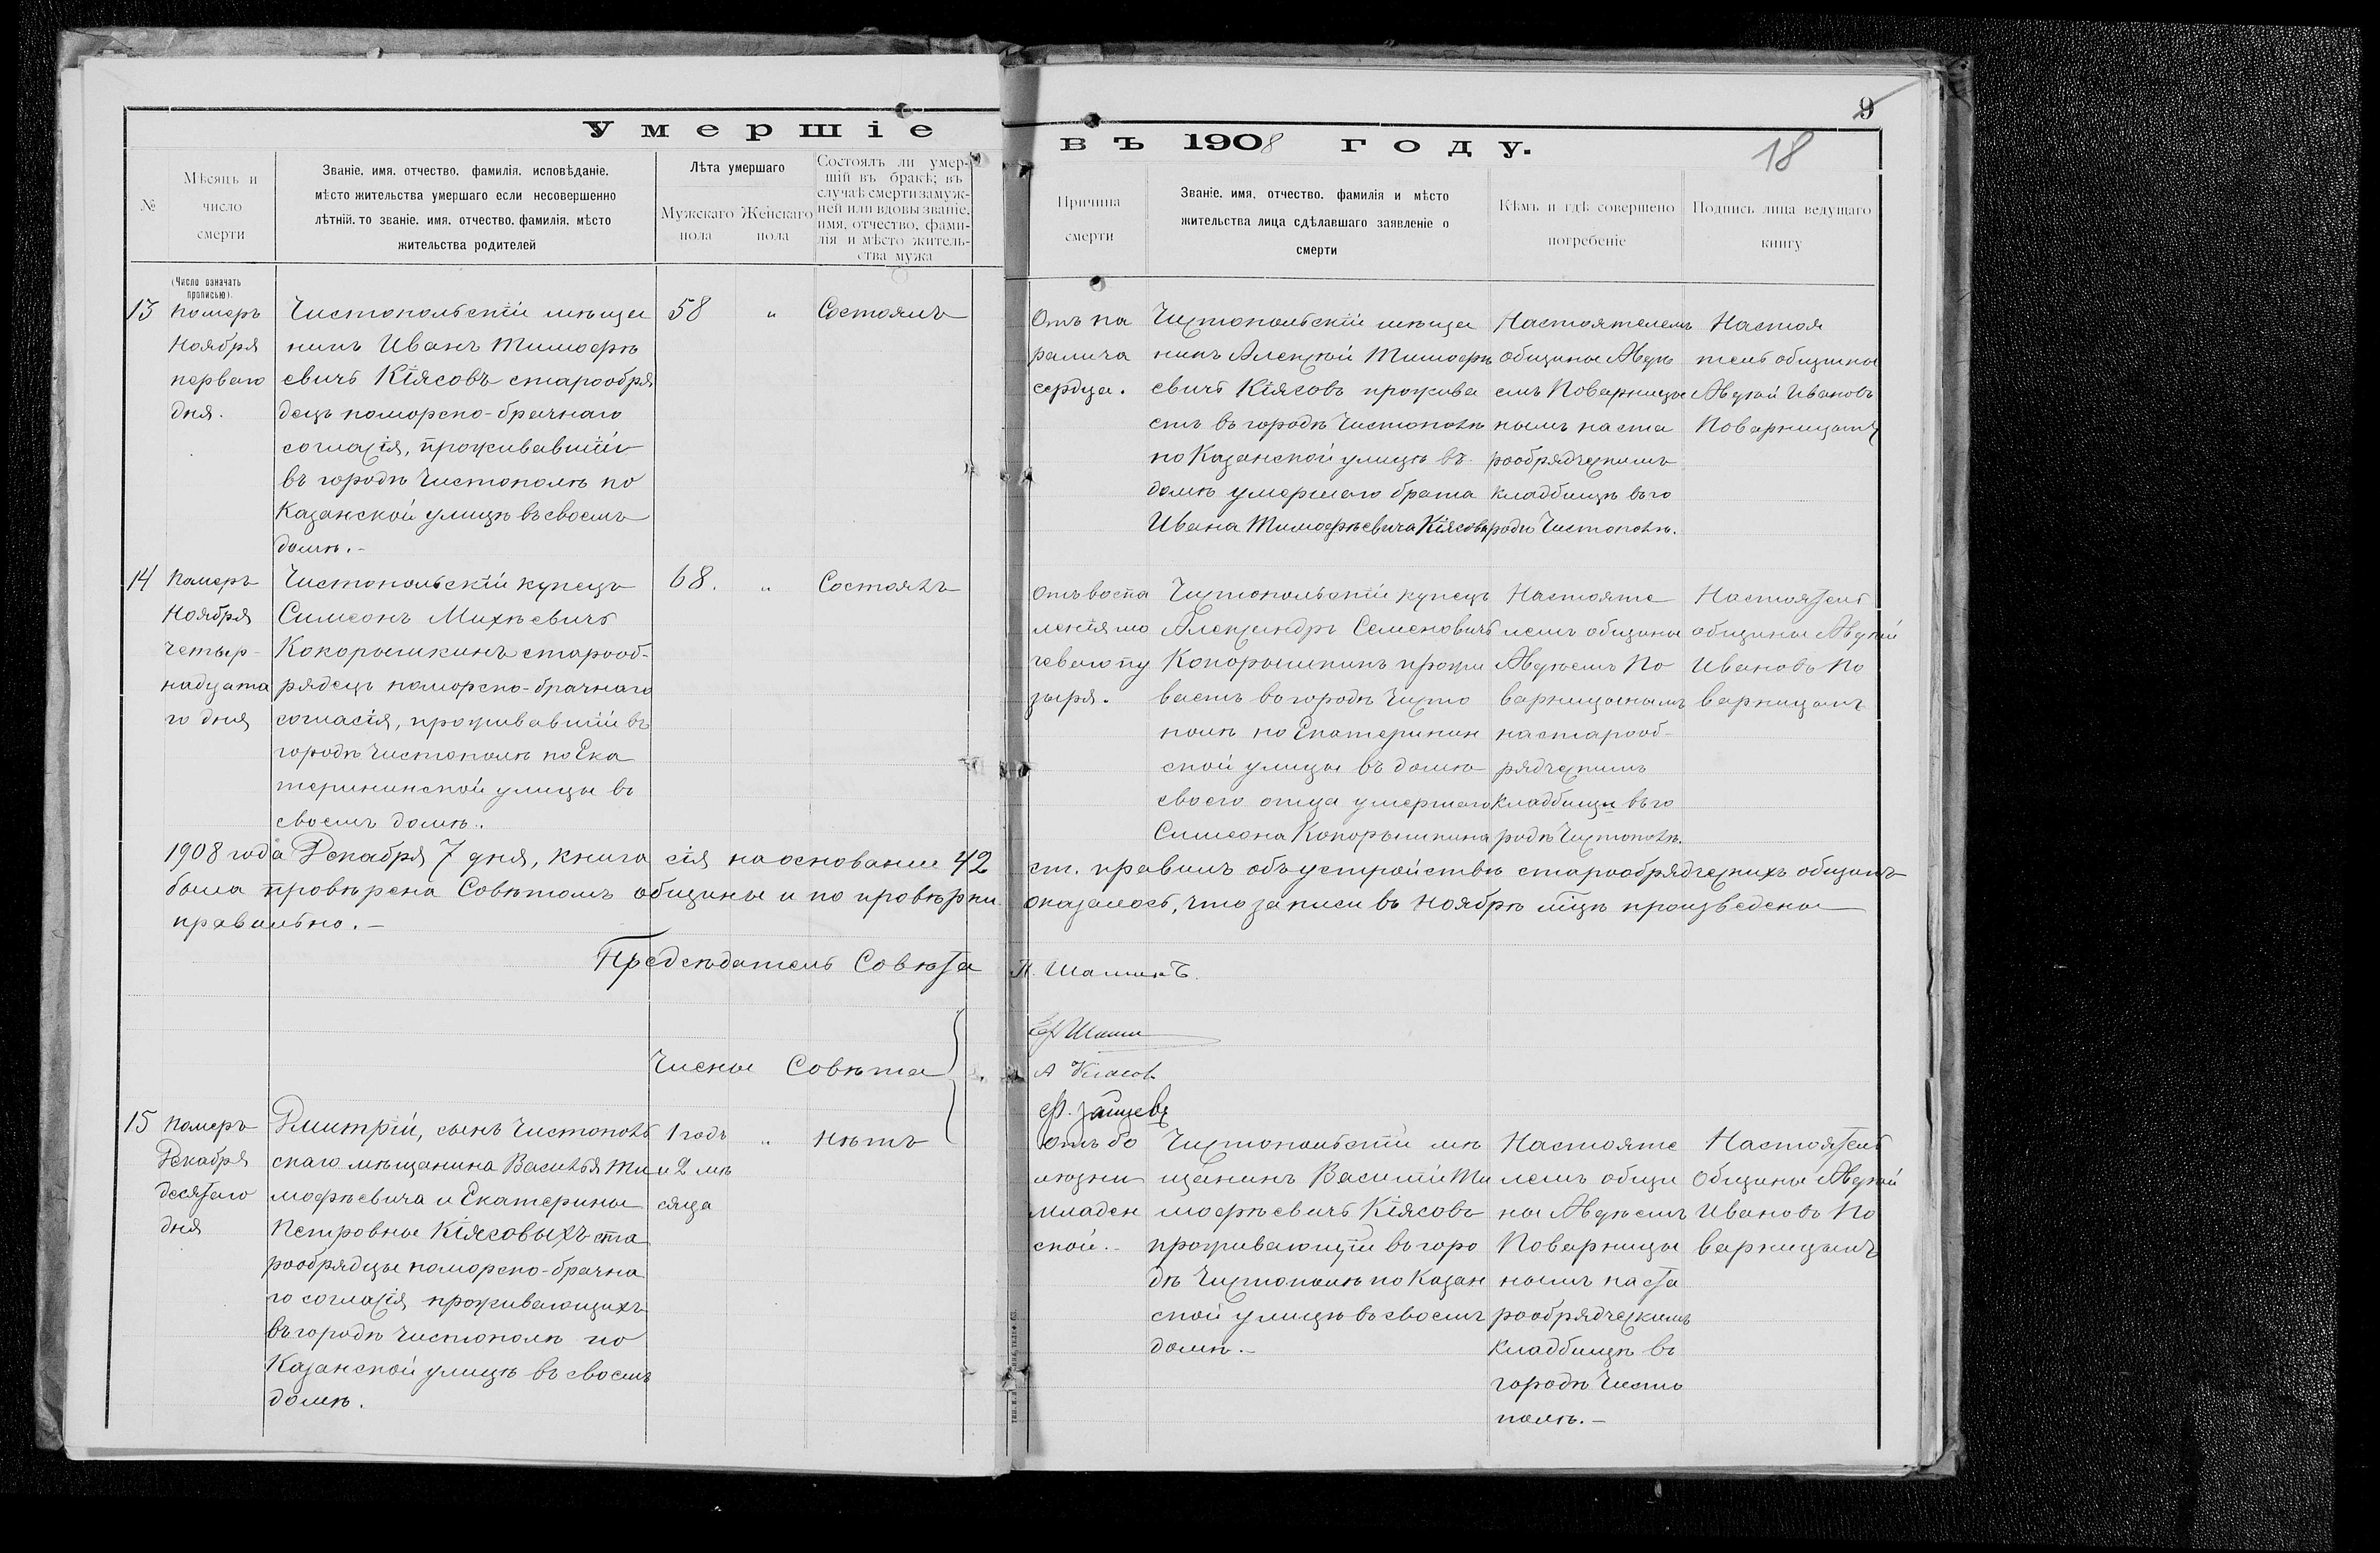 Умершіе
въ 1908 году.
9
18
№
Мѣсяцъ и
число
смерти
Званіе, имя, отчество, фамилія, исповѣданіе,
мѣсто жительства умершаго если несовершенно
лѣтній, то званіе, имя, отчество, фамилія, мѣсто
жительства родителей
Лѣта умершаго
Мужскаго
пола
Женскаго
пола
Состоялъ ли умер-
шій въ бракѣ; въ
случаѣ смерти замуж-
ней или вдовы званіе,
имя, отчество, фами-
лія и мѣсто житель-
ства мужа
Причина
смерти
Званіе, имя, отчество, фамилія и мѣсто
жительства лица сдѣлавшаго заявленіе о
смерти
Кѣмъ и гдѣ совершено
погребеніе
Подпись лица ведущаго
книгу
(Число означать
прописью).
13
Померъ
Ноября
перваго
дня.
Чистопольскій мѣща
нинъ Иванъ Тимофѣ
евичъ Кіясовъ старообря
децъ поморско-брачнаго
согласія, проживавшій
въ городѣ Чистополѣ по
Казанской улицѣ въ своемъ
домѣ.-
58
"
Состоялъ
Отъ па
ралича
сердца.
Чистопольскій мѣща
нинъ Алексѣй Тимофѣ
евичъ Кіясовъ прожива
етъ въ городѣ Чистополѣ
по Казанской улицѣ въ
домѣ умершаго брата
Ивана Тимофѣевича Кіясова
Настоятелемъ
общины Авдѣ
емъ Поварницы
нымъ на ста
рообрядческимъ
кладбищѣ въ го
родѣ Чистополѣ.
Настоя
тель общины
Авдѣй Ивановъ
Поварницынъ
14
Померъ
Ноября
Четыр-
надцата
го дня
Чистопольскій купецъ
Симеонъ Михѣевичъ
Кокорышкинъ старооб-
рядецъ поморско-брачнаго
согласія, проживавшій въ
городѣ Чистополѣ по Ека
терининской улицы въ
своемъ домѣ.
68.
"
Состоялъ
отъ воспа
ленія мо
чевого пу
зыря.
Чистопольскій купецъ
Александръ Семеновичъ
Кокорышкинъ прожи
ваетъ въ городѣ Чисто
полѣ по Екатеринин
ской улицы въ домѣ
своего отца умершаго
Симеона Кокорышкина
Настояте
лемъ общины
Авдѣемъ По
варницынымъ
на старооб-
рядческимъ
кладбищѣ въ го
родѣ Чистополѣ.
Настоятель
общины Авдѣй
Ивановъ По
варницынъ
1908 года Декабря 7 дня, книга сія на основаніе 42 ст. правилъ объ устройствѣ старообрядческихъ общинъ
была провѣрена Совѣтомъ общины и по провѣрки оказалось, что записи въ Ноябрѣ м̅цѣ произведены
правильно.-
Предсѣдатель Совѣта П. Шашинъ.
Члены Совѣта
А Кіясов
Ф. Зайцевъ
15
Померъ
Декабря
десятаго
дня
Дмитрій, сынъ Чистополь
скаго мѣщанина Василья Ти
мофѣевича и Екатерины
Петровны Кіясовыхъ ста
рообрядцы поморско-брачна
го согласія проживающихъ
въ городѣ Чистополѣ по
Казанской улицѣ въ своемъ
домѣ.
1 годъ
и 2 мѣ
сяца
"
нѣтъ
отъ бо
лѣзни
младен
ской.-
Чистопольскій мѣ
щанинъ Василій Ти
мофѣевичъ Кіясовъ
проживающій въ горо
дѣ Чистополѣ по Казан
ской улицѣ въ своемъ
домѣ.-
Настояте
лемъ общи
ны Авдѣемъ
Поварницы
нымъ на ста
рообрядческимъ
кладбищѣ въ
городѣ Чисто
полѣ.-
Настоятель
Общины Авдѣй
Ивановъ По
варницынъ